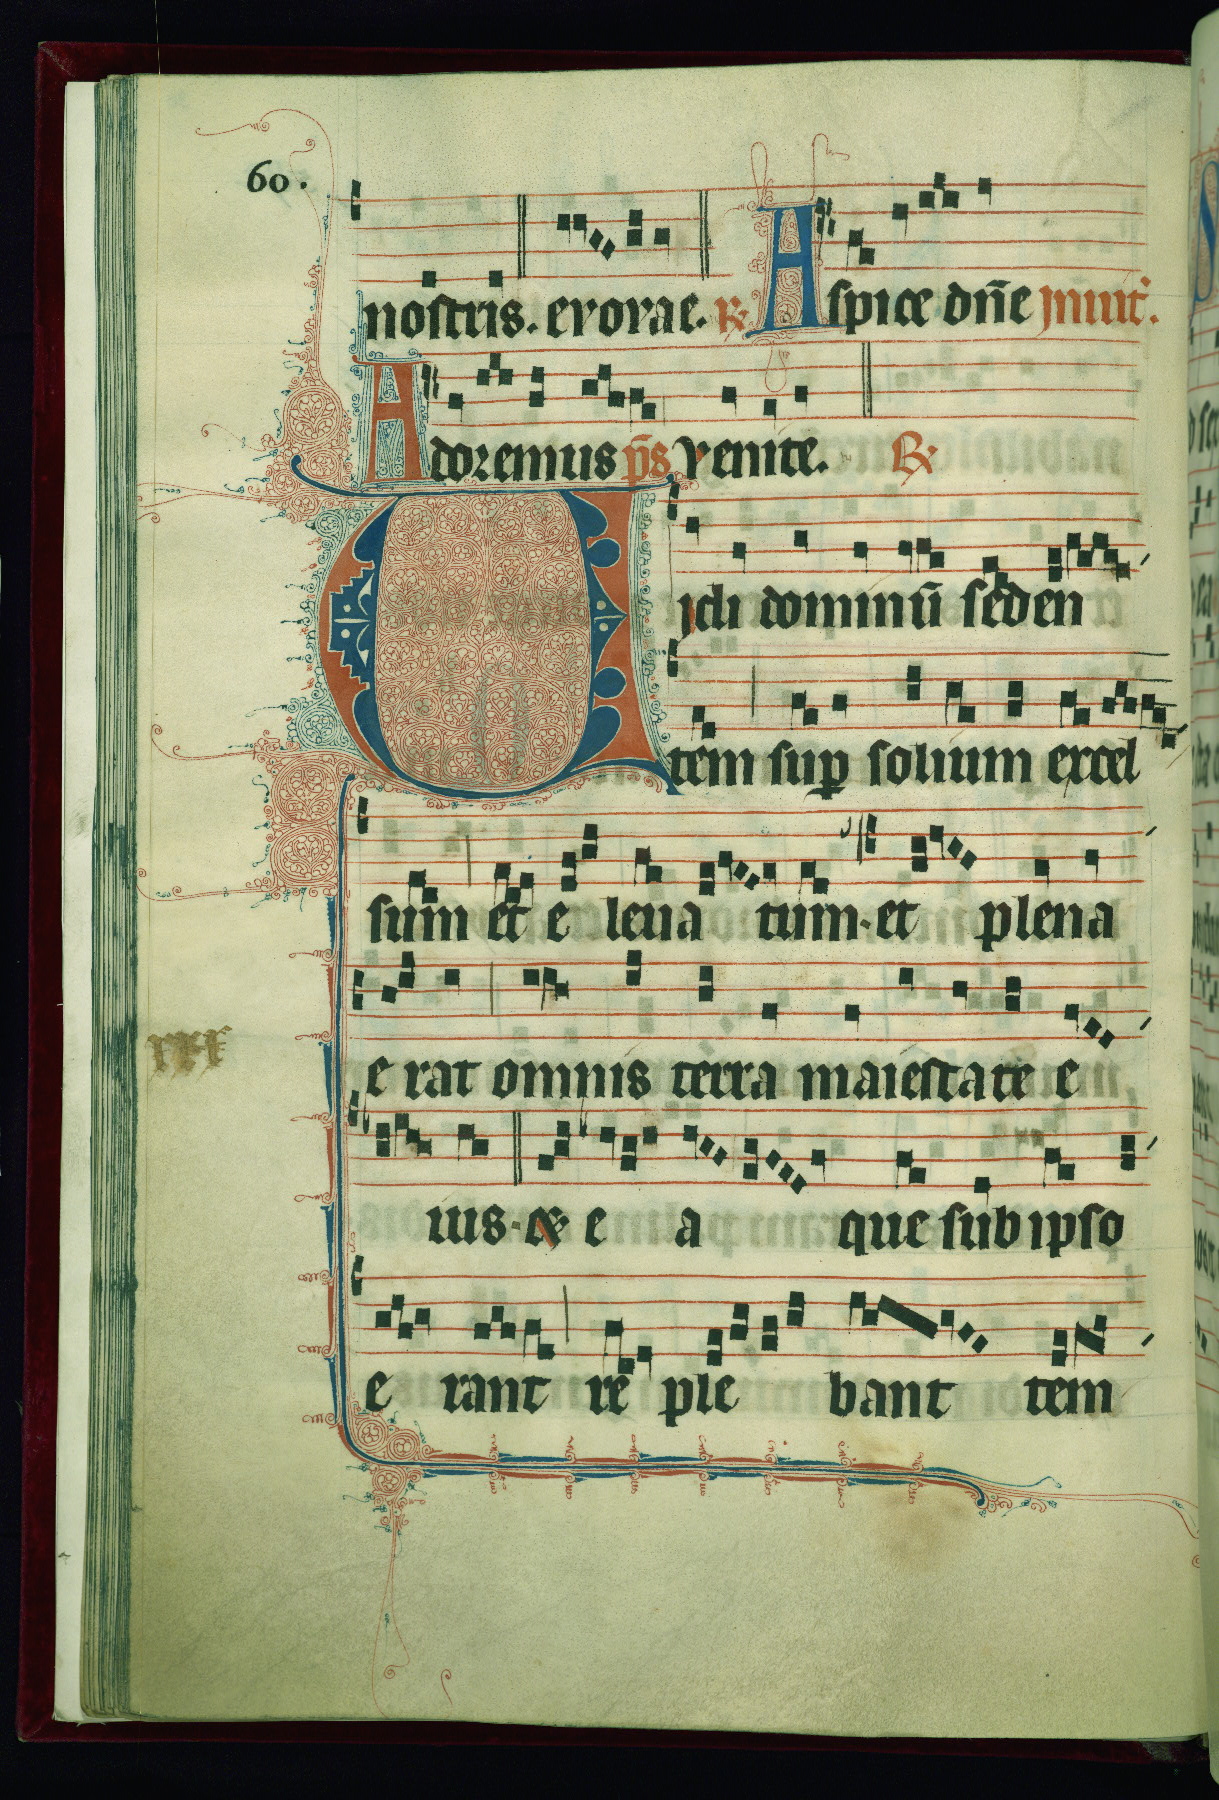 60.
nostris. evovae. ℟. Aspice dn̄e jnuit̄.
Adoremus p̄s venite. ℟
Vidi dominū seden
tem sup solium excel
sum et e leua tum. et plena
e rat omnis terra maiestate e
ius. & e a que sub ipso
e rant re ple bant tem